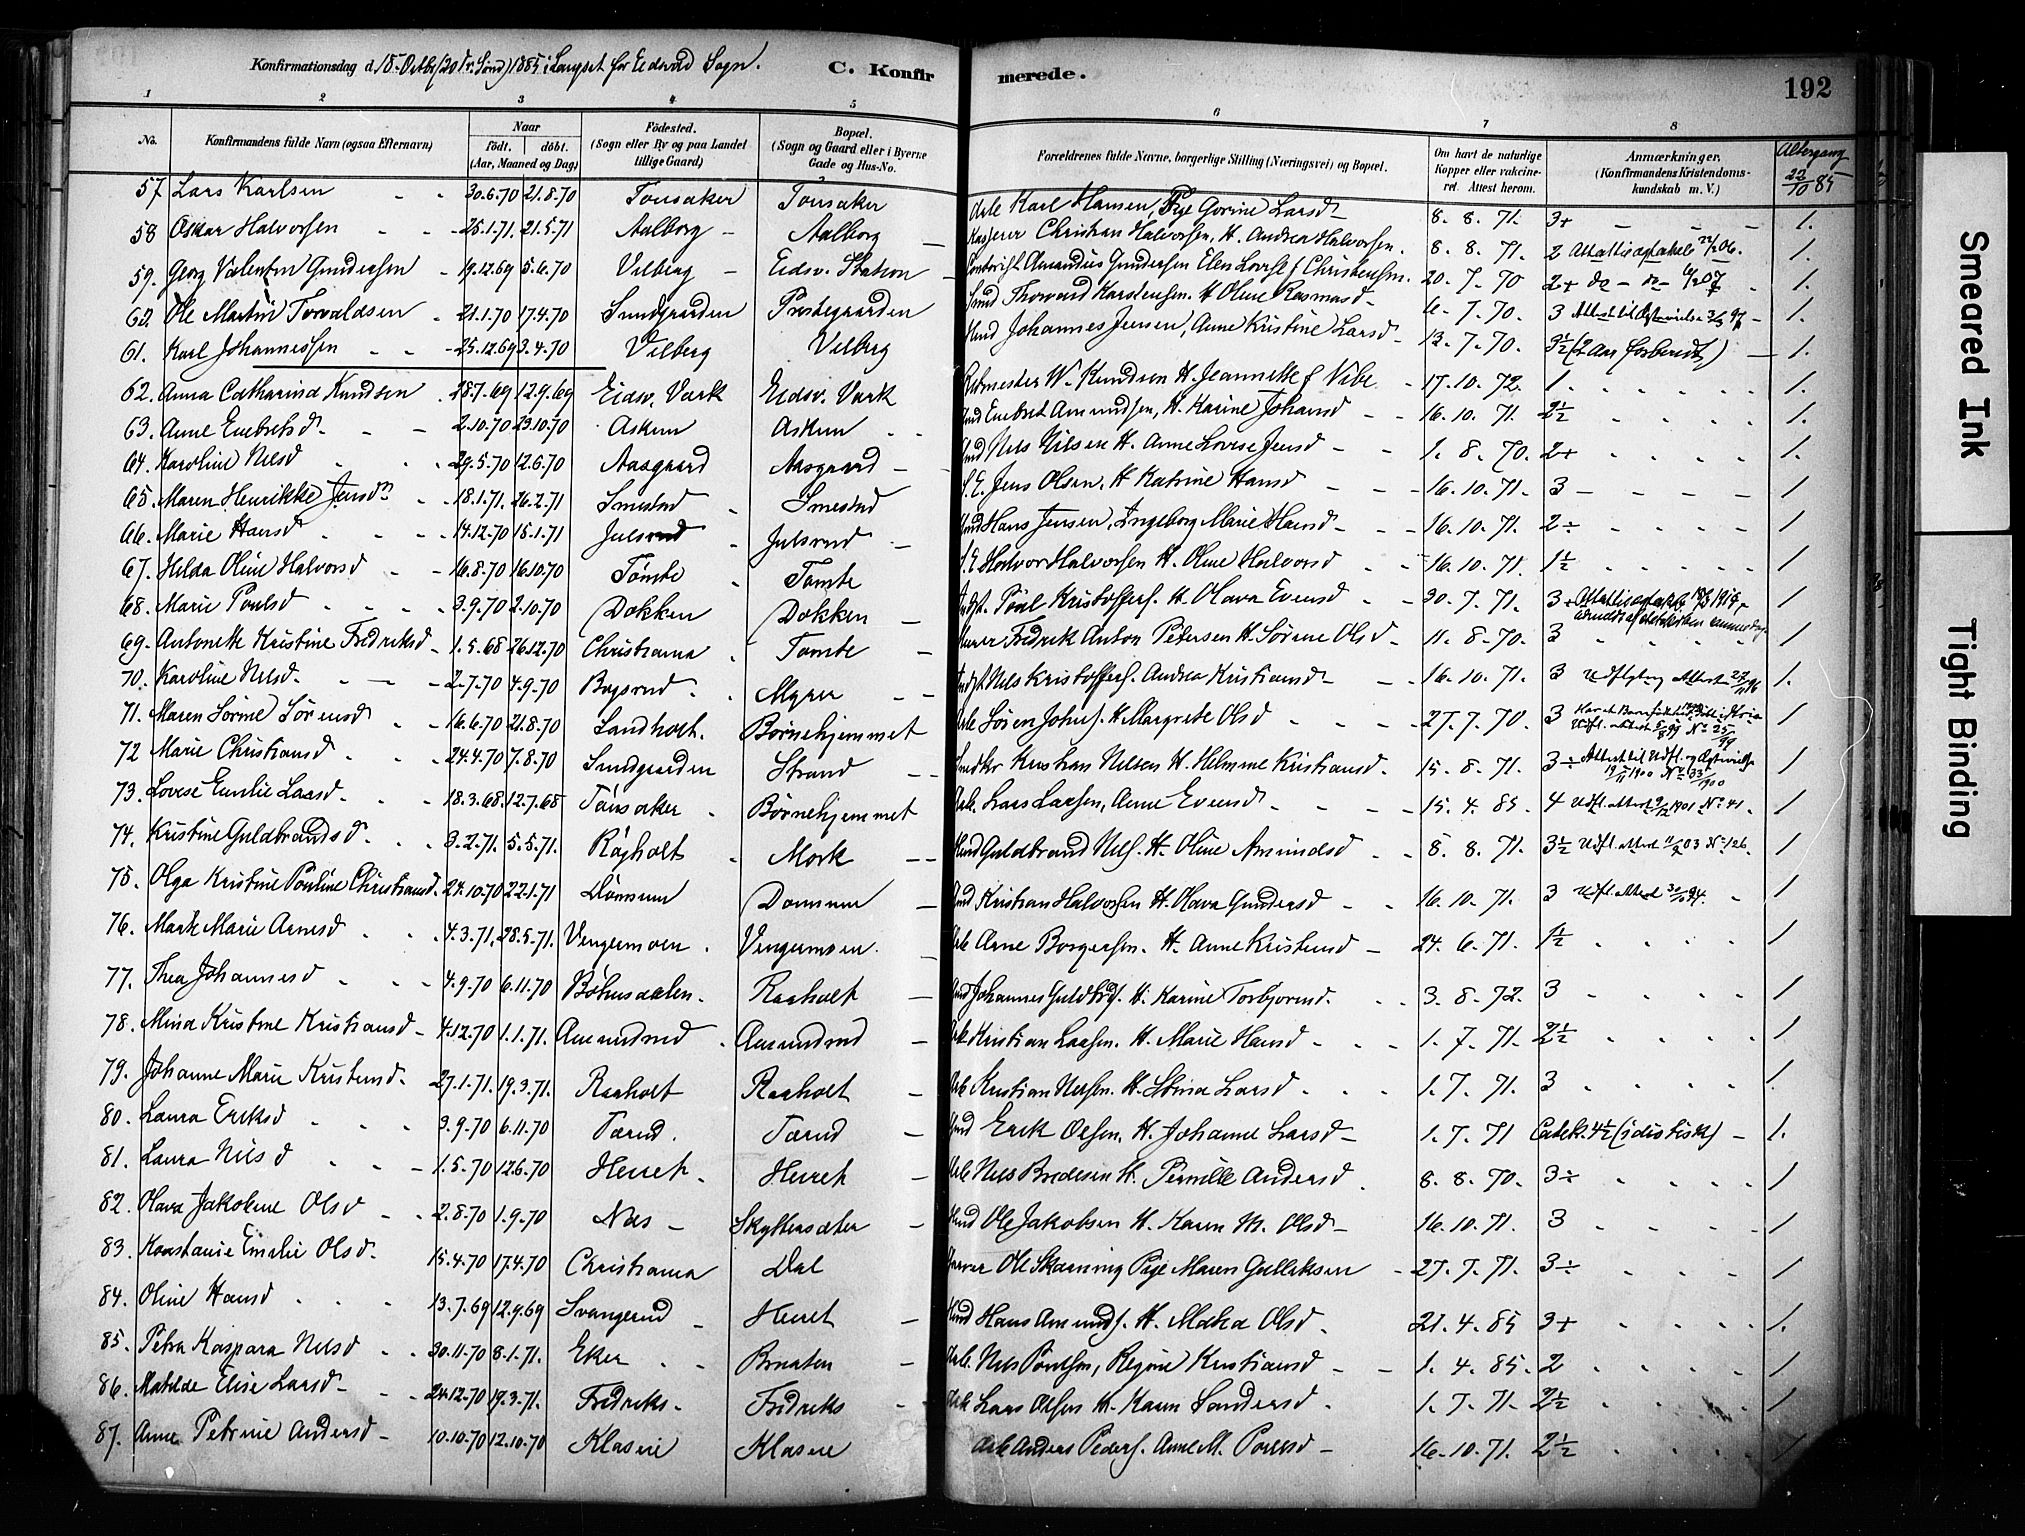 Konfirmationsdag d. 18. Octbr (20 S. Tr. Sønd) 1885 i Langset for Eidsvold Sogn.
C. Konfirmerede.
192
1 2 3 4 5 6 7 8
No. Konfirmandens fulde Navn (ogsaa Efternavn) Naar født. døbt. (Aar, Maaned og Dag) Fødested. (Sogn eller By og paa Landet tillige Gaard) Bopæl. (Sogn og Gaard eller i Byerne Gade og Hus-No. Forældrenes fulde Navne, borgerlige Stilling (Næringsvei) og Bopæl. Om havt de naturlige Kopper eller vaccineret. Attest herom. Anmærkninger. (Konfirmandens Kristendomskundskab m. V.) Altergang 22/10 85
57. Lars Karlsen 30.6.70 21.8.70 Tonsaker Tonsaker Arb. Karl Hansen, Pige Gorine Larsd 8. 8. 71. 3+ 1.
58 Oskar Halvorsen 25.1.71. 21.5.71 Aalborg Aalborg Kasserer Christian Halvorsen, H. Andrea Halvorsen. 8. 8. 71. 2 1.
59. Georg Valentin Gundersen 19.12.69 5.6.70 Vilberg Eidsv. Station Amandus Gundersen Elen Lovise f Christensen. 20. 7. 70 2+ 1.
60. Ole Martin Torvaldsen 21.1.70 17.4.70 Sundgaarden Prestegaarden Smed Thorvard Karstensen. H Oline Rasmusd 6. 7. 70. 3 1.
61. Karl Johannessen 25.12.69 3.4.70 Vilberg Vilberg Hmd Johannes Jensen, Anne Kristine Larsd 13. 7. 70. 3½ (2 Aar forberedt) 1.
62. Anna Catharina Knudsen 28.7.69 12.9.69 Eidsv. Værk Eidsv. Værk W. Knudsen H. Jeannette f Vibe 17. 10. 72. 1. 1.
63. Anne Enebretsd 2.10.70 23.10.70 Askim Askim Hmd Enebret Amundsen, H. Karine Johansd 16. 10. 71. 2½ 1.
64. Karoline Nilsd 29.5.70 12.6.70 Aasgaard Aasgaard Hmd Nils Nilsen H. Anne Lovise Jensd 1. 8. 70. 2+ 1.
65. Maren Henrikke Jensd 18.1.71. 26.2.71 Smestad Smestad S.E. Jens Olsen. H Katrine Hansd 16. 10. 71. 3 1
66. Marie Hansd 14.12.70 15.1.71 Julsrud Julsrud Hmd Hans Jensen, Ingeborg Marie Hansd 16. 10. 71. 2÷ 1
67. Hilda Oline Halvorsd 16.8.70 16.10.70 Tømte Tømte S.E. Halvor Halvorsen H. Oline Halvorsd 16. 10. 71. 1½ 1
68. Marie Poulsd 3.9.70 2.10.70 Dokken Dokken Indst. Poul Kristoffers. H. Olava Evensd 30. 7. 71. 3÷ 1
69. Antonette Kristine Fredriksd 1.5.68 26.12.70 Christiania Tømte Murer Fredrik Anton Petersen H. Sørine Olsd 11. 8. 70. 3 1
70. Karoline Nilsd. 2.7.70 4.9.70 Bøgsrud Myrer Indst. Nils Kristoffers. Andrea Kristiansd 16. 10. 71. 3 Udflytning Attest 1.
71. Maren Sørine Sørensd 16.6.70 21.8.70 Landholt. Børnehjemmet Arb. Søren Johns. H. Margrete Olsd 27. 7. 70. 3 1
72 Marie Christiansd 24.4.70 7.8.70 Sundgaarden Strand Smed Kristian Nilsen H. Helmine Kristiansd. 15. 8. 71. 3÷ Attest til Udfl. og Ægteviels 1
73. Lovise Emilie Larsd. 18.3.68 12.7.68 Tonsaker Børnehjemmet Arb. Lars Larsen, Anne Evensd 15. 4. 85. 4 Udfl. Attest 9/12 1901 No 41. 1
74. Kristine Guldbrandsd. 3.2.71. 5.5.71. Røgholt Mork Hmd Guldbrand Nils. H. Oline Amundsd 8. 8. 71. 3½ Udfl. Attest 11/2 03 No 126. 1
75. Olga Kristine Pouline Christiansd. 24.10.70 22.1.71 Dømsum Domsum Hmd Kristian Halvorsen H. Olava Gundersd 16. 10. 71. 3 Udfl. Attest 1
76. Marte Marie Arnesd 4.3.71. 28.5.71. Vengermoen Vengermoen. Arb Arne Borgersen. H. Anne Kristensd 24. 6. 71. 1½ 1
77. Thea Johannesd 4.9.70 6.11.70 Bøhnsdalen. Raaholt Hmd Johannes Guldbrds. H. Karine Torbjørnsd. 3. 8. 72. 3 1
78. Mina Kristine Kristiansd 4.12.70 1.1.71. Amundrud Amundrud Arb Kristian Larsen. H. Marie Hansd 1. 7. 71. 2½ 1
79. Johanne Marie Kristensd. 27.1.71. 19.3.71. Raaholt Raaholt Arb Kristian Nilsen. H. Stina Larsd 1. 7. 71. 3 1.
80. Laura Eriksd 3.9.70 6.11.70 Tærud. Tærud Hmd Erik Olsen. H. Johanne Larsd 1. 7. 71 Catek. 4½ (idiotisk) 1.
81. Laura Nilsd 1.5.70 12.6.70 Herret. Herret Arb Nils Bredesen H. Pernille Andersd 8. 8. 70. 3÷ 1
82. Olava Jakobine Olsd 2.8.70 1.9.70 Næs Skyttersæter Hmd Ole Jakobsen H. Karen M. Olsd 16. 10. 71. 3 1
83. Konstanse Emilie Olsd. 15.4.70 17.4.70 Christiania Dal Ole Skarning Pige Maren Gulliksen 27. 7. 71. 3÷ 1
84. Oline Hansd 13.7.69 12.9.69 Svangerud Herret Hmd Hans Amunds. H. Matea Olsd. 21. 4. 85 3+ 1.
85. Petra Kaspara Nilsd 30.11.70 8.1.71. Eker Braaten Arb. Nils Poulsen, Regine Kristiansd 1. 4. 85. 2 1
86. Matilde Elise Larsd 24.12.70 19.3.71. Fredriks. Fredriks Arb Lars Olsen H. Karen Sandersd 1. 7. 71. 2½ 1
87. Anne Petrine Andersd 10.10.70 12.10.70 Klasere Klasere Arb Anders Peders. Anne M. Poulsd 16. 10. 71. 2½ 1
Smeared Ink
Tight Binding